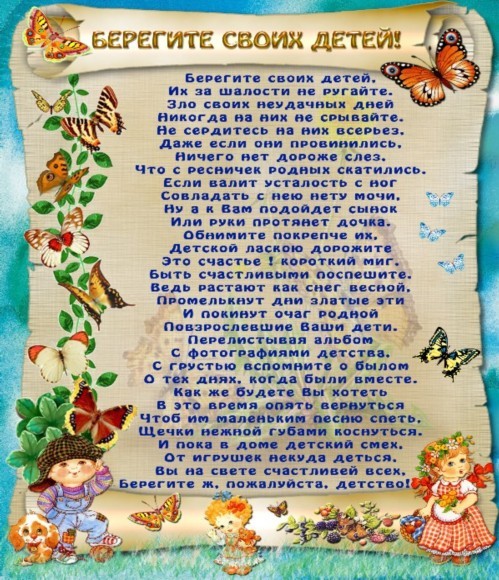 БЕРЕГИТЕ СВОИХ ДЕТЕЙ!
Берегите своих детей,
Их за шалости не ругайте.
Зло своих неудачных дней
Никогда на них не срывайте.
Не сердитесь на них всерьез,
Даже если они провинились,
Ничего нет дороже слез,
Что с ресничек родных скатились.
Если валит усталость с ног
Совладать с нею нету мочи,
Ну а к Вам подойдет сынок
Или руки протянет дочка.
Обнимите покрепче их,
Детской ласкою дорожите
Это счастье ! короткий миг,
Быть счастливыми поспешите.
Ведь растают как снег весной,
Промелькнут дни златые эти
И покинут очаг родной
Повзрослевшие Ваши дети.
Перелистывая альбом
С фотографиями детства,
С грустью вспомните о былом
О тех днях, когда были вместе.
Как же будете Вы хотеть
В это время опять вернуться
Чтоб им маленьким песню спеть,
Щечки нежной губами коснуться.
И пока в доме детский смех,
От игрушек некуда деться,
Вы на свете счастливей всех,
Берегите ж, пожалуйста, детство!